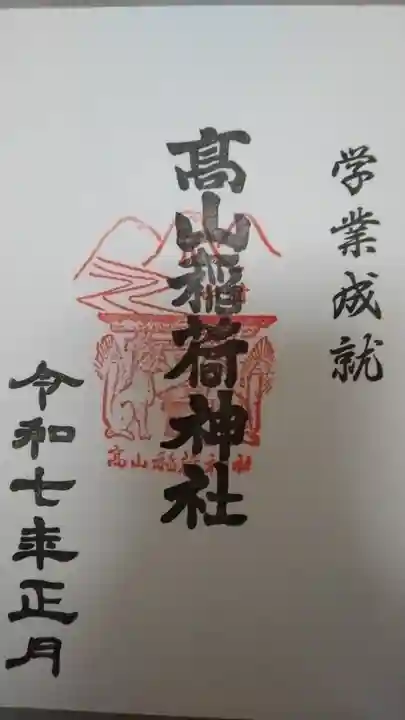 学業成就
高山稲荷神社
高山稲荷神社
令和七年正月